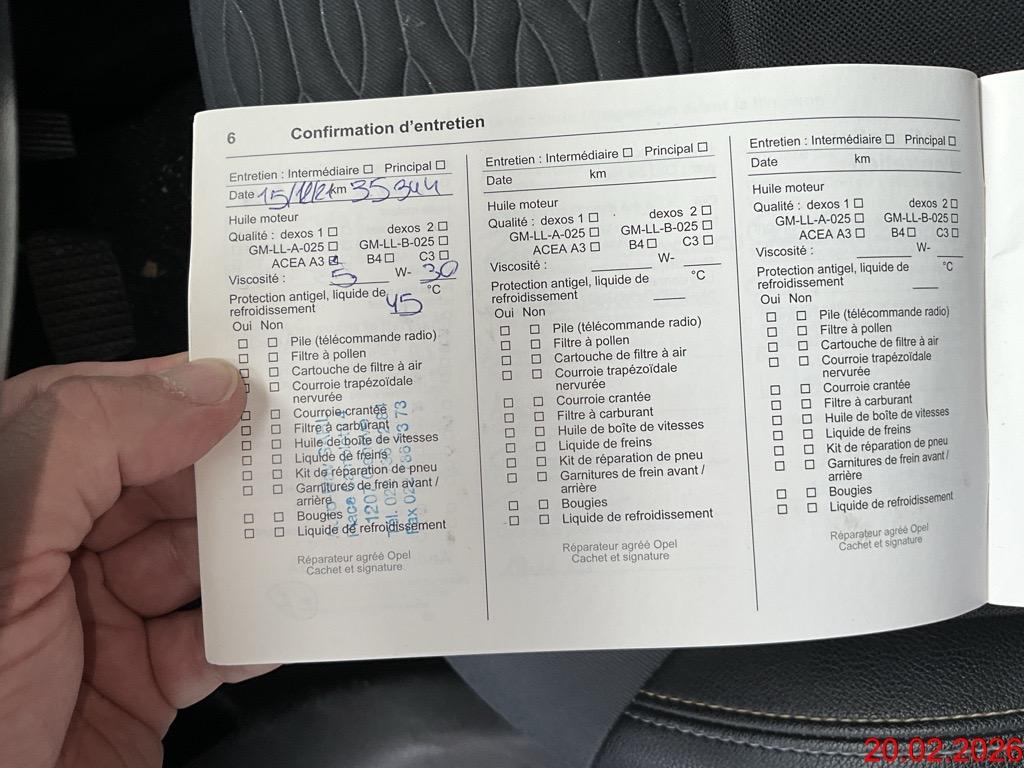 6 Confirmation d'entretien
Entretien : Intermédiaire ☐ Principal ☐
Date 15/12/21 km 35344
Huile moteur
Qualité : dexos 1 ☐ dexos 2 ☐
GM-LL-A-025 ☐ GM-LL-B-025 ☐
ACEA A3 ☒ B4 ☐ C3 ☐
Viscosité : 5 W- 30
Protection antigel, liquide de
refroidissement 45 °C
Oui Non
☐ ☐ Pile (télécommande radio)
☐ ☐ Filtre à pollen
☐ ☐ Cartouche de filtre à air
☐ ☐ Courroie trapézoïdale
nervurée
☐ ☐ Courroie crantée
☐ ☐ Filtre à carburant
☐ ☐ Huile de boîte de vitesses
☐ ☐ Liquide de freins
☐ ☐ Kit de réparation de pneu
☐ ☐ Garnitures de frein avant /
arrière
☐ ☐ Bougies
☐ ☐ Liquide de refroidissement
Réparateur agréé Opel
Cachet et signature
Entretien : Intermédiaire ☐ Principal ☐
Date km
Huile moteur
Qualité : dexos 1 ☐ dexos 2 ☐
GM-LL-A-025 ☐ GM-LL-B-025 ☐
ACEA A3 ☐ B4 ☐ C3 ☐
Viscosité : W-
Protection antigel, liquide de °C
refroidissement
Oui Non
☐ ☐ Pile (télécommande radio)
☐ ☐ Filtre à pollen
☐ ☐ Cartouche de filtre à air
☐ ☐ Courroie trapézoïdale
nervurée
☐ ☐ Courroie crantée
☐ ☐ Filtre à carburant
☐ ☐ Huile de boîte de vitesses
☐ ☐ Liquide de freins
☐ ☐ Kit de réparation de pneu
☐ ☐ Garnitures de frein avant /
arrière
☐ ☐ Bougies
☐ ☐ Liquide de refroidissement
Réparateur agréé Opel
Cachet et signature
Entretien : Intermédiaire ☐ Principal ☐
Date km
Huile moteur
Qualité : dexos 1 ☐ dexos 2 ☐
GM-LL-A-025 ☐ GM-LL-B-025 ☐
ACEA A3 ☐ B4 ☐ C3 ☐
Viscosité : W-
Protection antigel, liquide de °C
refroidissement
Oui Non
☐ ☐ Pile (télécommande radio)
☐ ☐ Filtre à pollen
☐ ☐ Cartouche de filtre à air
☐ ☐ Courroie trapézoïdale
nervurée
☐ ☐ Courroie crantée
☐ ☐ Filtre à carburant
☐ ☐ Huile de boîte de vitesses
☐ ☐ Liquide de freins
☐ ☐ Kit de réparation de pneu
☐ ☐ Garnitures de frein avant /
arrière
☐ ☐ Bougies
☐ ☐ Liquide de refroidissement
Réparateur agréé Opel
Cachet et signature
20.02.2026